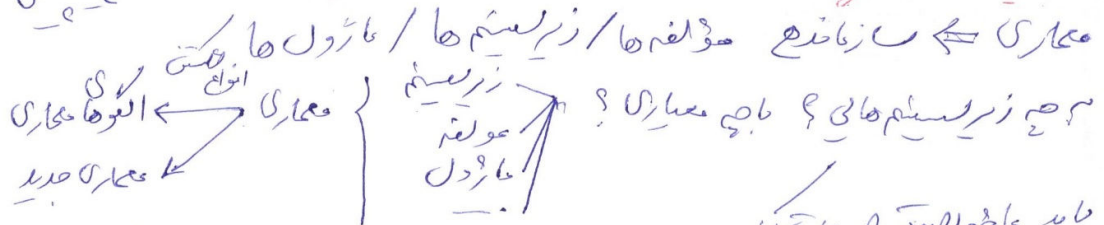 معماری ⇐ سازماندهی مؤلفه‌ها / زیرسیستم‌ها / ماژول‌ها
چه زیرسیستم‌هایی؟ با چه معیاری؟
زیرسیستم
مولفه
ماژول
معماری
انواع
الگوهای معماری
معماری جدید
باید